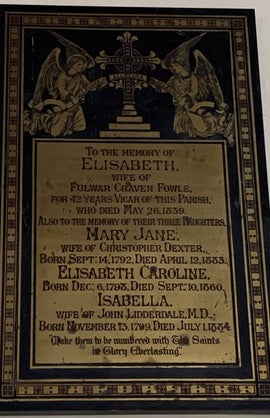 ALLELUIA
TO THE MEMORY OF
ELISABETH,
WIFE OF
FULWAR CRAVEN FOWLE,
FOR 42 YEARS VICAR OF THIS PARISH,
WHO DIED MAY 26, 1839.
ALSO TO THE MEMORY OF THEIR THREE DAUGHTERS,
MARY JANE,
WIFE OF CHRISTOPHER DEXTER,
BORN SEPT: 14, 1792, DIED APRIL 12, 1883.
ELISABETH CAROLINE,
BORN DEC: 6, 1798, DIED SEPT: 10, 1860.
ISABELLA,
WIFE OF JOHN LIDDERDALE, M.D.,
BORN NOVEMBER 13, 1799, DIED JULY 1, 1884.
Make them to be numbered with Thy Saints
in Glory Everlasting.